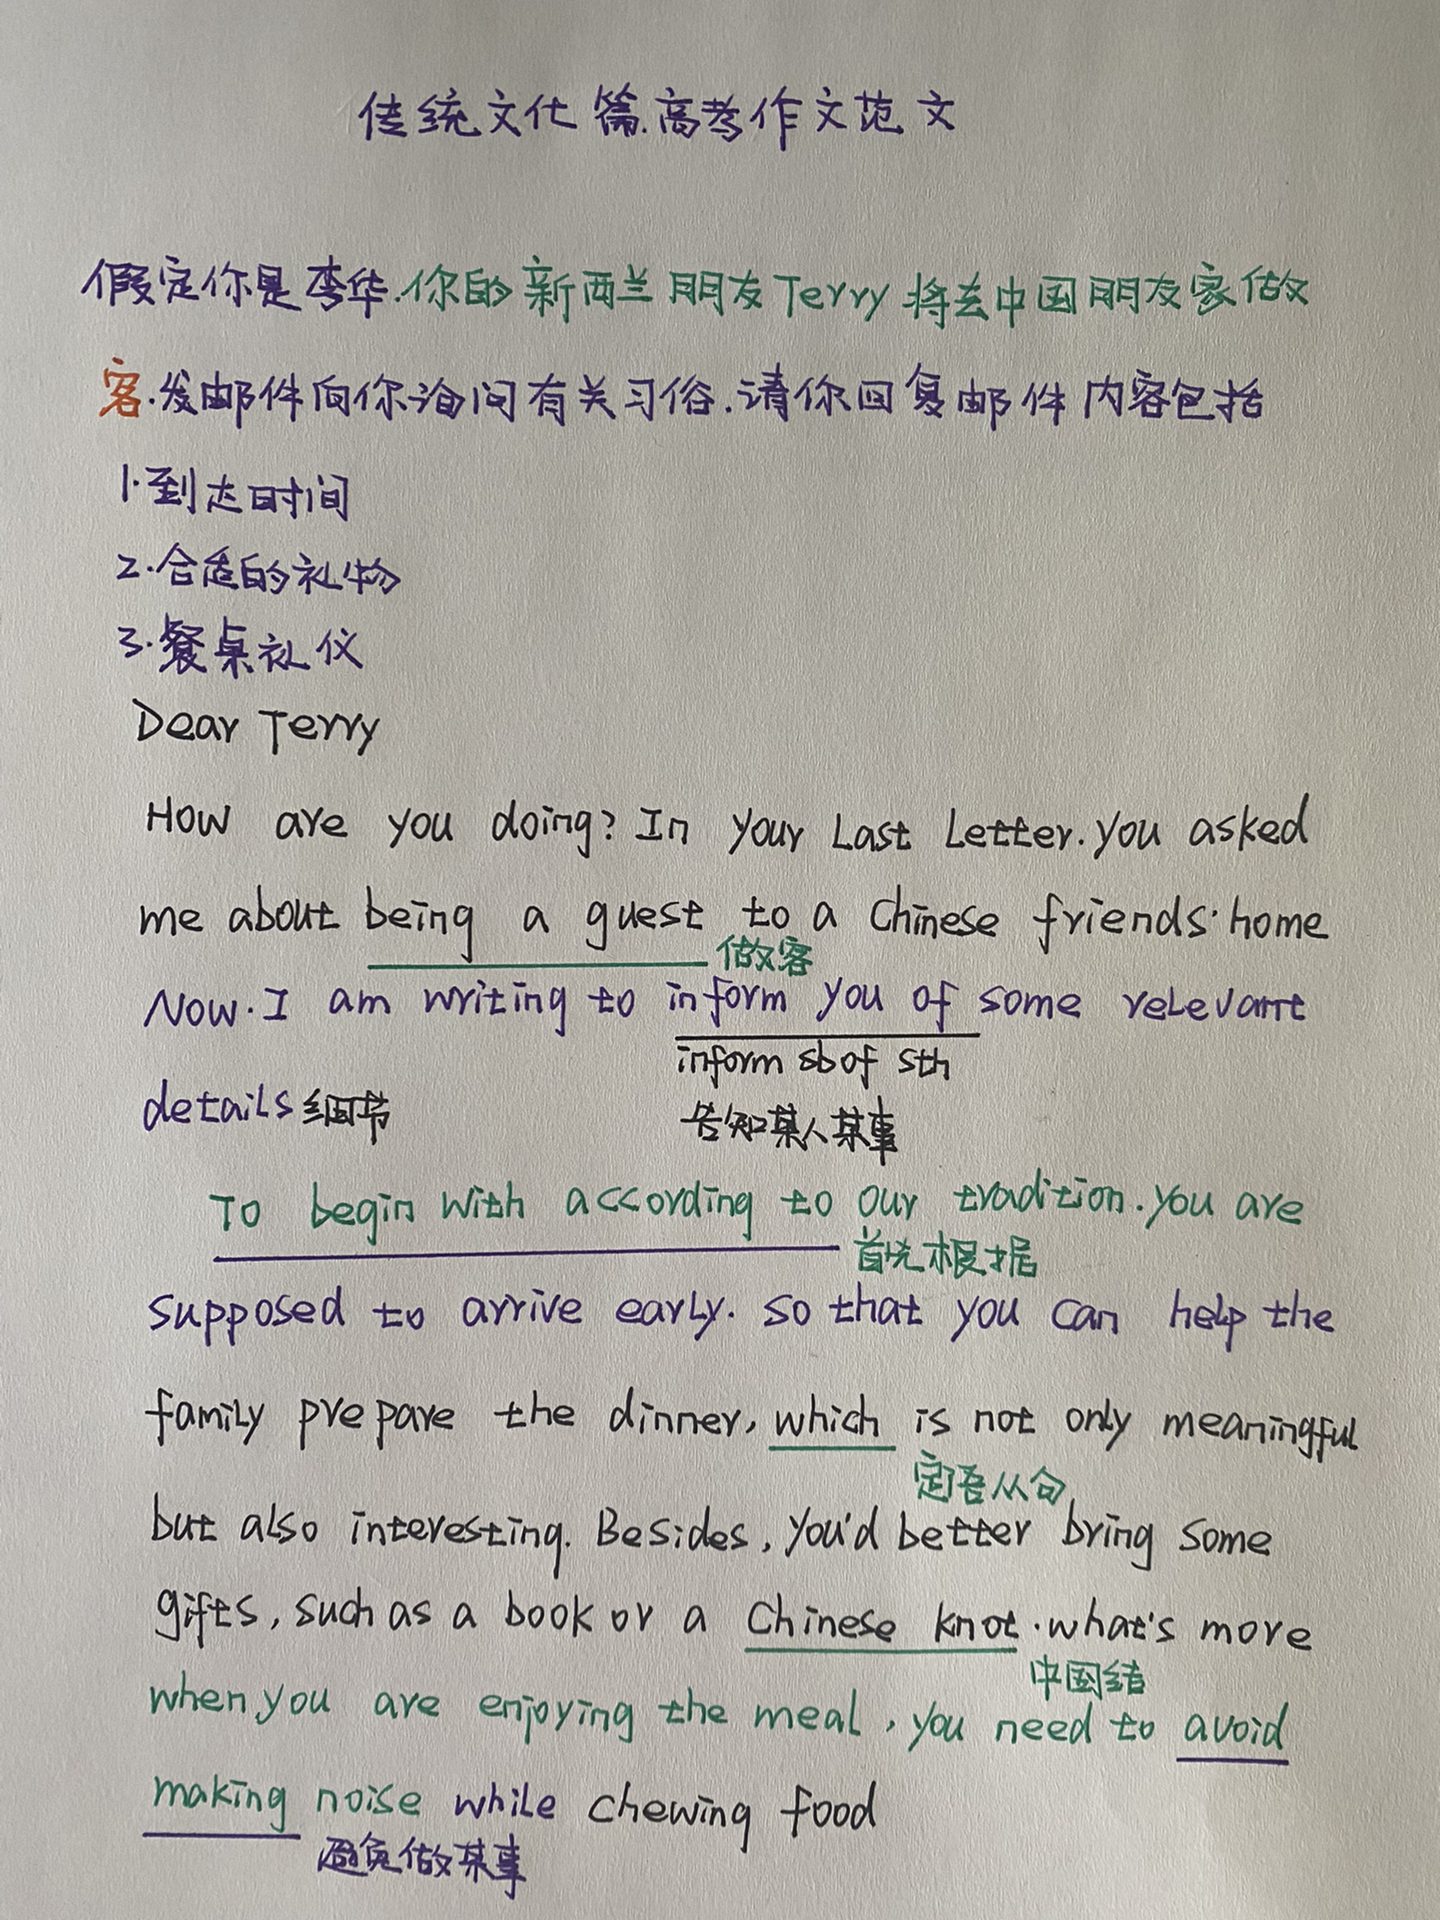 传统文化篇.高考作文范文
假定你是李华.你的新西兰朋友Terry将去中国朋友家做
客.发邮件向你询问有关习俗.请你回复邮件内容包括
1.到达时间
2.合适的礼物
3.餐桌礼仪
Dear Terry
How are you doing? In your Last Letter. you asked
me about being a guest to a Chinese friends' home
做客
Now. I am writing to inform you of some relevant
inform sb of sth
details 细节
告知某人某事
To begin with according to our tradition. you are
首先根据
supposed to arrive early. so that you can help the
family prepare the dinner, which is not only meaningful
定语从句
but also interesting. Besides, you'd better bring some
gifts, such as a book or a Chinese knot. what's more
中国结
when you are enjoying the meal, you need to avoid
making noise while chewing food
避免做某事